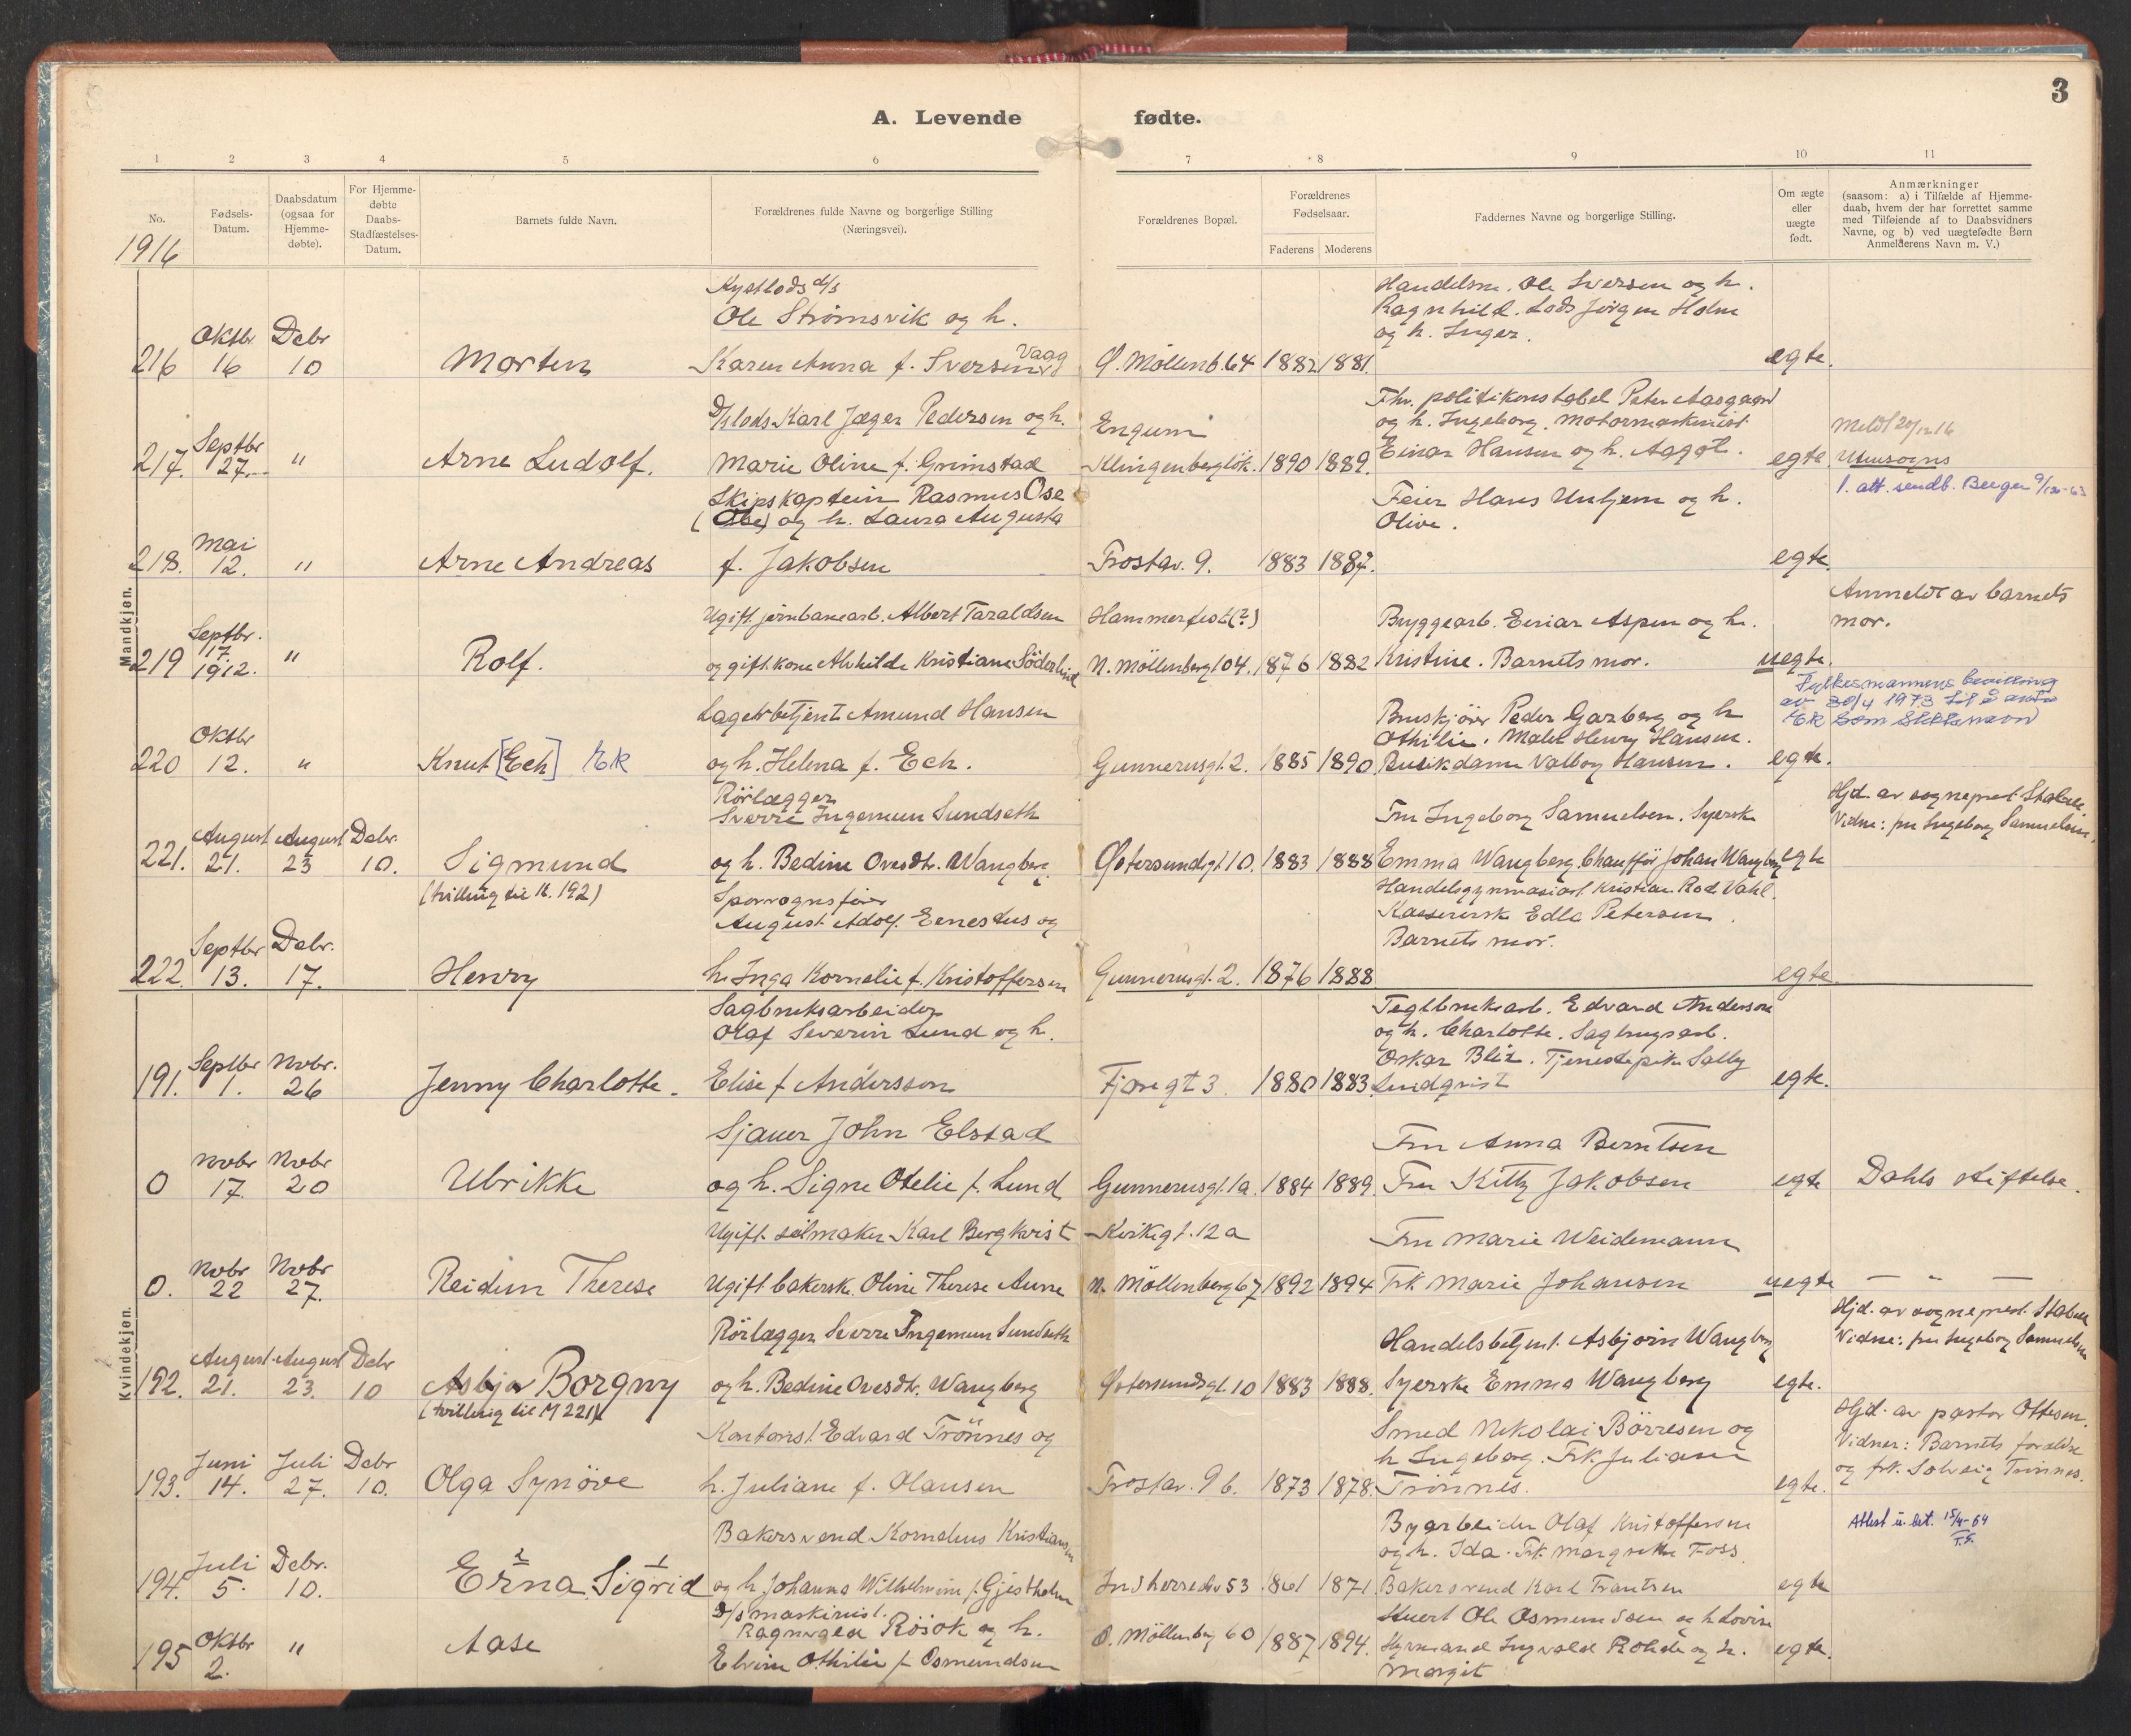 3
A. Levende fødte.
1 2 3 4 5 6 7 8 9 10 11
No.
Fødsels-
Datum.
Daabsdatum
(ogsaa for
Hjemme-
døbte).
For Hjemme-
døbte
Daabs-
Stadfæstelses-
Datum.
Barnets fulde Navn.
Forældrenes fulde Navne og borgerlige Stilling
(Næringsvei).
Forældrenes Bopæl.
Forældrenes
Fødselsaar.
Faderens Moderens
Faddernes Navne og borgerlige Stilling.
Om ægte
eller
uægte
født.
Anmærkninger
(saasom: a) i Tilfælde af Hjemme-
daab, hvem der har forrettet samme
med Tilføiende af to Daabsvidners
Navne, og b) ved uægtefødte Børn
Anmelderens Navn m. V.)
1916
Mandkjøn.
216 Oktbr 16 Debr 10 Morten
Kystlods d/s
Ole Strömsvik og h.
Karen Anna f. Iversen Vaag
Ø. Möllenb. 64 1882 1881.
Handelsm. Ole Iversen og h.
Ragnhild. Lods Jörgen Holm
og h. Inger.
egte.
217. Septbr 27. " Arne Ludolf.
D/slods Karl Jæger Pedersen og h.
Marie Oline f. Grimstad
Engum
Klingenberg lök. 1890 1889.
Fhv. politikonstabel Peter Aasgaard
og h. Ingeborg. Motormaskinist
Einar Hansen og h. Aagot.
egte
Meldt 20/12 16
Utensogns
1. att. sendt. Bergen 9/12-63
218. Mai 12. " Arne Andreas
Skipskaptein Rasmus Ose
(Obe) og h. Laura Augusta
f. Jakobsen
Frostav. 9. 1883 1887.
Feier Hans Unhjem og h.
Olive.
egte.
219 Septbr. 17. 1912. " Rolf.
Ugift. jernbanearb. Albert Taraldsen
og gift. kone Alvhilde Kristiane Söderlind
Hammerfest (?)
N. Möllenberg 104. 1876 1882
Bryggearb. Einar Aspen og h.
Kristine. Barnets mor.
uegte.
Anmeldt av barnets
mor.
220 Oktbr 12. " Knut [Eck] Ek
Lagerbetjent Amund Hansen
og h. Helena f. Eck.
Gunnerusgt. 2. 1885 1890
Bruskjörer Peder Garberg og h
Othilie. Maler Henry Hansen.
Butikdame Valborg Hansen.
egte.
Fylkesmannens bevilling
av 30/4 1973 til å anta
Ek som slektsnavn
221. August 21. August 23 Debr. 10. Sigmund
(tvilling til K. 192)
Rörlægger
Sverre Ingemun Sundseth
og h. Bedine Ovesdtr. Wangberg.
Østersundsgt. 10. 1883 1888
Fru Ingeborg Samuelsen. Syerske
Emma Wangberg. Chaufför Johan Wangberg
egte
Hjd. av sogneprest Stabell
Vidne: fru Ingeborg Samuelsen.
222. Septbr 13. Debr. 17. Henry
Sporvognsförer
August Adolf Ernestus og
h. Inga Kornelie f. Kristoffersen
Gunnerusgt. 2. 1876 1888
Handelsgymnasiast. Kristian Rod Vahl.
Kassererske Edla Petersen.
Barnets mor.
egte.
Kvindekjøn.
191. Septbr 1. Novbr. 26 Jenny Charlotte.
Sagbruksarbeider
Olaf Severin Lund og h.
Elise f. Andersson
Fjæregt 3. 1880 1883.
Teglbruksarb. Edvard Anderson
og h. Charlotte. Sagbrugsarb.
Oskar Blix. Tjenestepike Sally
Lundqvist
egte.
0 Novbr 17. Novbr 20 Ulrikke
Sjauer John Elstad
og h. Signe Otelie f. Lund
Gunnerusgt. 1a. 1884 1889.
Fru Anna Berntsen
Fru Kitty Jakobsen
egte Dahls stiftelse.
0. Novbr 22 Novbr 27. Reidun Therese
Ugift. seilmaker Karl Bergkvist
Ugift. bakerske. Oline Therese Aune
Kirkegt. 12 a
N. Möllenberg 67 1892 1894
Fru Marie Weidemann
Frk Marie Johansen
uegte — " —
192. August 21. August 23. Debr 10 Asbjø Borgny
(tvilling til M 221)
Rörlægger Sverre Ingemun Sundseth
og h. Bedine Ovesdtr. Wangberg
Østersundsgt. 10 1883 1888.
Handelsbetjent. Asbjörn Wangberg
Syerske Emma Wangberg
egte.
Hjd. av sogneprest. Stabell
Vidne: fru Ingeborg Samuelsen
193. Juni 14. Juli 27. Debr 10. Olga Synöve
Kontorist. Edvard Trönnes og
h. Juliane f. Olausen
Frostav. 9 b. 1873 1878.
Smed Nikolai Börresen og
h Ingeborg. Frk. Juliane
Trönnes.
egte.
Hjd. av pastor Ottesen.
Vidner: Barnets forældre
og frk. Solveig Trönnes.
194. Juli 5. Debr. 10. Erna 2 Sigrid 1
Bakersvend Kornelius Kristiansen
og h Johanna Wilhelmine f. Gjestholm
Indherredsv 53 1861 1871.
Byarbeider Olaf Kristoffersen
og h. Ida. Frk. Margrethe Foss.
Bakersvend Karl Frantsen
egte
Attest u. bet. 15/4-64
195 Oktbr 2. " Aase
D/s maskinist.
Ragnvald Rösok og h.
Elvine Othilie f. Osmundsen
Ö. Möllenberg 60 1887 1894.
Snert Ole Osmundsen og h Lovise
Hyrmand Ingvald Rohde og h.
Margit
egte.